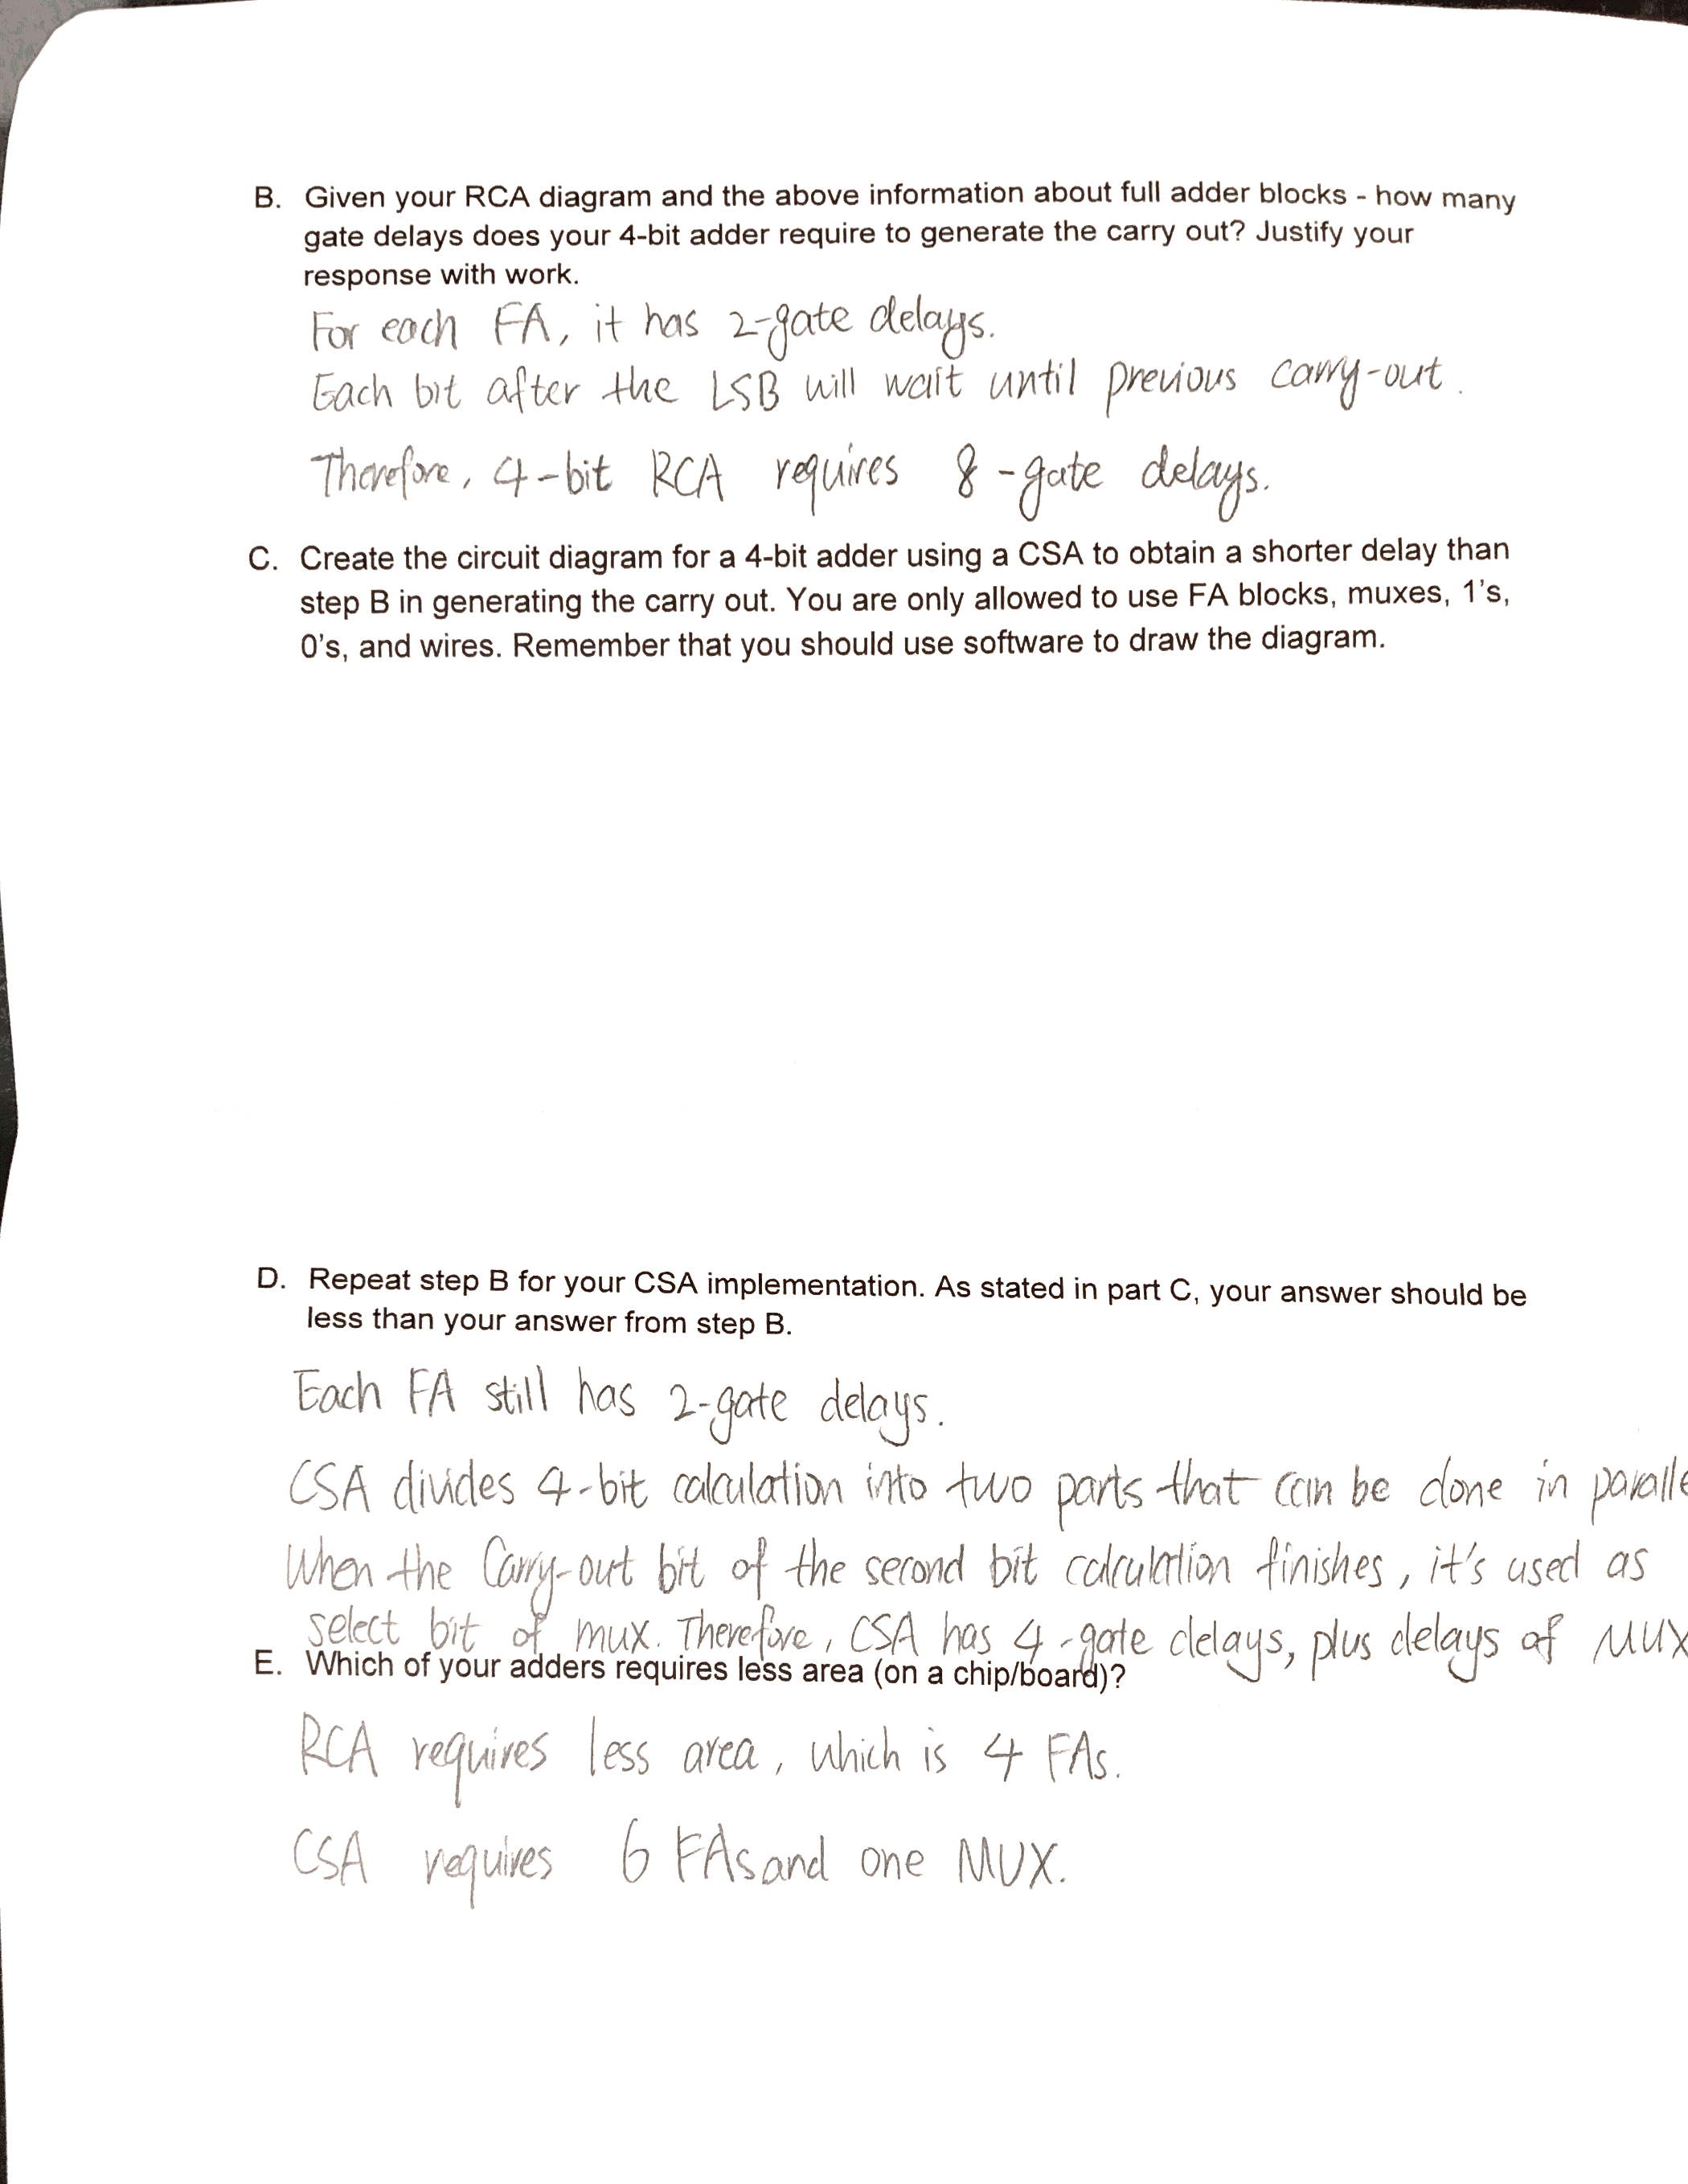 B. Given your RCA diagram and the above information about full adder blocks - how many
gate delays does your 4-bit adder require to generate the carry out? Justify your
response with work.
For each FA, it has 2-gate delays.
Each bit after the LSB will wait until previous carry-out.
Therefore, 4-bit RCA requires 8-gate delays.
C. Create the circuit diagram for a 4-bit adder using a CSA to obtain a shorter delay than
step B in generating the carry out. You are only allowed to use FA blocks, muxes, 1's,
0's, and wires. Remember that you should use software to draw the diagram.
D. Repeat step B for your CSA implementation. As stated in part C, your answer should be
less than your answer from step B.
Each FA still has 2-gate delays.
CSA divides 4-bit calculation into two parts that can be done in paralle
When the Carry-out bit of the second bit calculation finishes, it's used as
select bit of mux. Therefore, CSA has 4-gate delays, plus delays of MUX
E. Which of your adders requires less area (on a chip/board)?
RCA requires less area, which is 4 FAs.
CSA requires 6 FAs and one MUX.